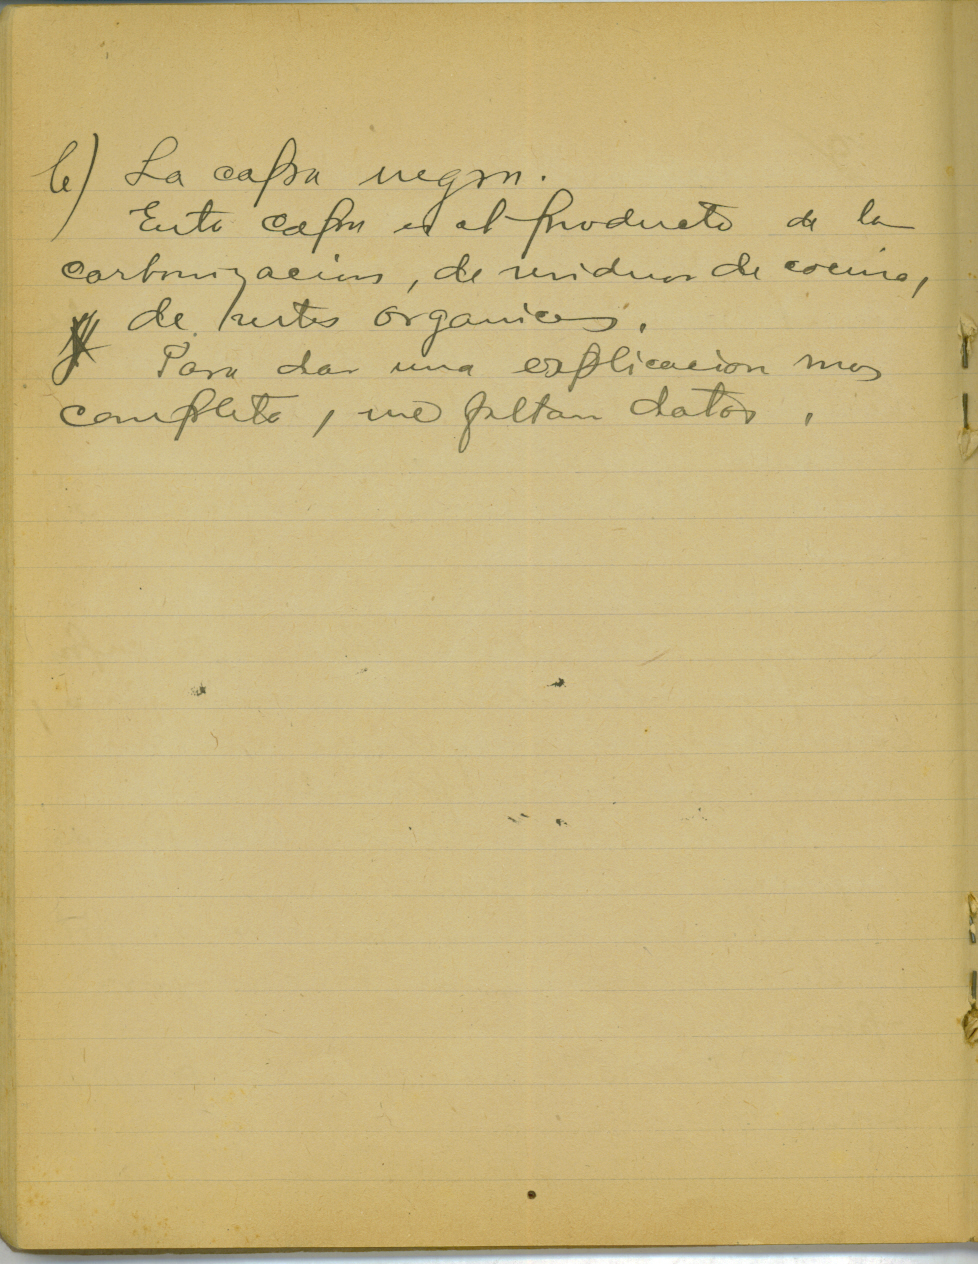 b) La capa negra.
Esta capa es el producto de la
carbonizacion, de residuos de cocina,
y de restos organicos.
Para dar una explicacion mas
completa, me faltan datos.